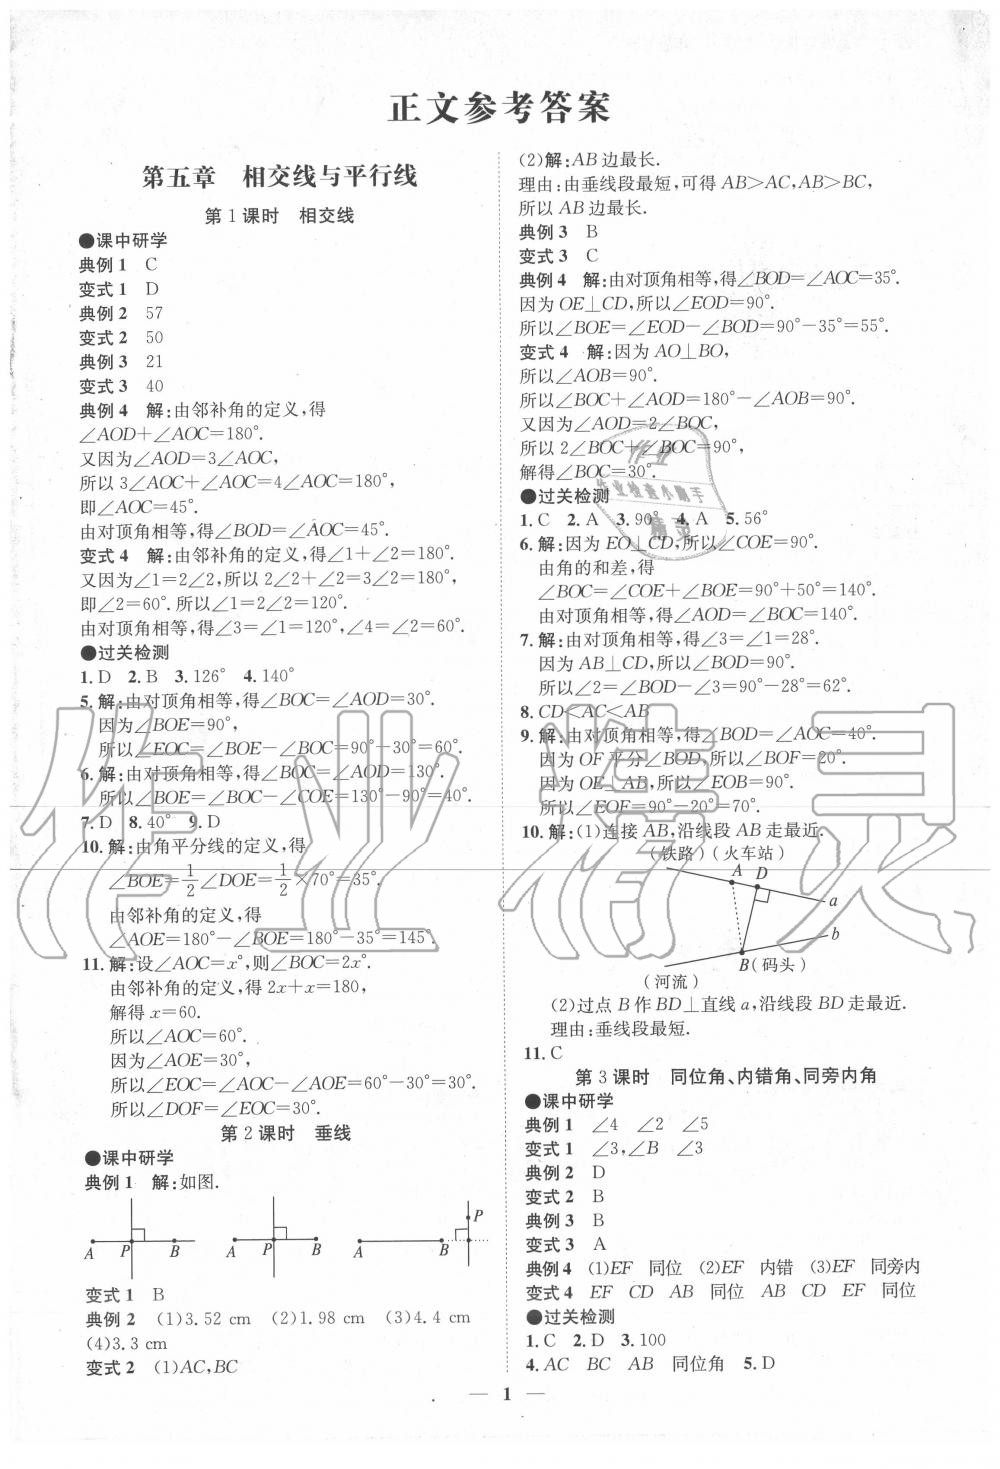 正文参考答案
第五章　相交线与平行线
第 1 课时　相交线
●课中研学
典例 1　C
变式 1　D
典例 2　57
变式 2　50
典例 3　21
变式 3　40
典例 4　解:由邻补角的定义,得
∠AOD+∠AOC=180°.
又因为∠AOD=3∠AOC,
所以 3∠AOC+∠AOC=4∠AOC=180°,
即∠AOC=45°.
由对顶角相等,得∠BOD=∠AOC=45°.
变式 4　解:由邻补角的定义,得∠1+∠2=180°.
又因为∠1=2∠2,所以 2∠2+∠2=3∠2=180°,
即∠2=60°.所以∠1=2∠2=120°.
由对顶角相等,得∠3=∠1=120°,∠4=∠2=60°.
●过关检测
1. D　2. B　3. 126°　4. 140°
5. 解:由对顶角相等,得∠BOC=∠AOD=30°.
因为∠BOE=90°,
所以∠EOC=∠BOE-∠BOC=90°-30°=60°.
6. 解:由对顶角相等,得∠BOC=∠AOD=130°.
所以∠BOE=∠BOC-∠COE=130°-90°=40°.
7. D　8. 40°　9. D
10. 解:由角平分线的定义,得
∠BOE=1/2∠DOE=1/2×70°=35°.
由邻补角的定义,得
∠AOE=180°-∠BOE=180°-35°=145°.
11. 解:设∠AOC=x°,则∠BOC=2x°.
由邻补角的定义,得 2x+x=180,
解得 x=60.
所以∠AOC=60°.
因为∠AOE=30°,
所以∠EOC=∠AOC-∠AOE=60°-30°=30°.
所以∠DOF=∠EOC=30°.
第 2 课时　垂线
●课中研学
典例 1　解:如图.
A P B
A P B
A B P
变式 1　B
典例 2　(1)3.52 cm　(2)1.98 cm　(3)4.4 cm
(4)3.3 cm
变式 2　(1)AC,BC
(2)解:AB边最长.
理由:由垂线段最短,可得 AB>AC,AB>BC,
所以 AB边最长.
典例 3　B
变式 3　C
典例 4　解:由对顶角相等,得∠BOD=∠AOC=35°.
因为 OE⊥CD,所以∠EOD=90°.
所以∠BOE=∠EOD-∠BOD=90°-35°=55°.
变式 4　解:因为 AO⊥BO,
所以∠AOB=90°.
所以∠BOC+∠AOD=180°-∠AOB=90°.
又因为∠AOD=2∠BOC,
所以 2∠BOC+∠BOC=90°,
解得∠BOC=30°.
●过关检测
1. C　2. A　3. 90°　4. A　5. 56°
6. 解:因为 EO⊥CD,所以∠COE=90°.
由角的和差,得
∠BOC=∠COE+∠BOE=90°+50°=140°.
由对顶角相等,得∠AOD=∠BOC=140°.
7. 解:由对顶角相等,得∠3=∠1=28°.
因为 AB⊥CD,所以∠BOD=90°.
所以∠2=∠BOD-∠3=90°-28°=62°.
8. CD<AC<AB
9. 解:由对顶角相等,得∠BOD=∠AOC=40°.
因为 OF平分∠BOD,所以∠BOF=20°.
因为 OE⊥AB,所以∠EOB=90°.
所以∠EOF=90°-20°=70°.
10. 解:(1)连接 AB,沿线段 AB走最近.
(铁路)(火车站)
A D
a
b
B(码头)
(河流)
(2)过点 B作 BD⊥直线 a,沿线段 BD走最近.
理由:垂线段最短.
11. C
第 3 课时　同位角、内错角、同旁内角
●课中研学
典例 1　∠4　∠2　∠5
变式 1　∠3,∠B　∠3
典例 2　D
变式 2　B
典例 3　B
变式 3　A
典例 4　(1)EF　同位　(2)EF　内错　(3)EF　同旁内
变式 4　EF　CD　AB　同位　AB　CD　EF　同位
●过关检测
1. C　2. D　3. 100
4. AC　BC　AB　同位角　5. D
— 1 —
作业精灵
作业
作业检查小助手
精灵